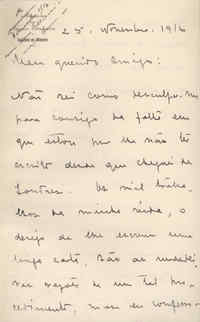 25. Novembro. 1916
Meu querido Amigo:
Não sei como desculpar-me
para consigo da falta em
que estou por lhe não ter
escrito desde que cheguei de
Londres. Os mil traba-
lhos da minha vida, o
desejo de lhe escrever uma
longa carta, são as verdadei-
ras razões de um tal pro-
cedimento, mas eu confesso-